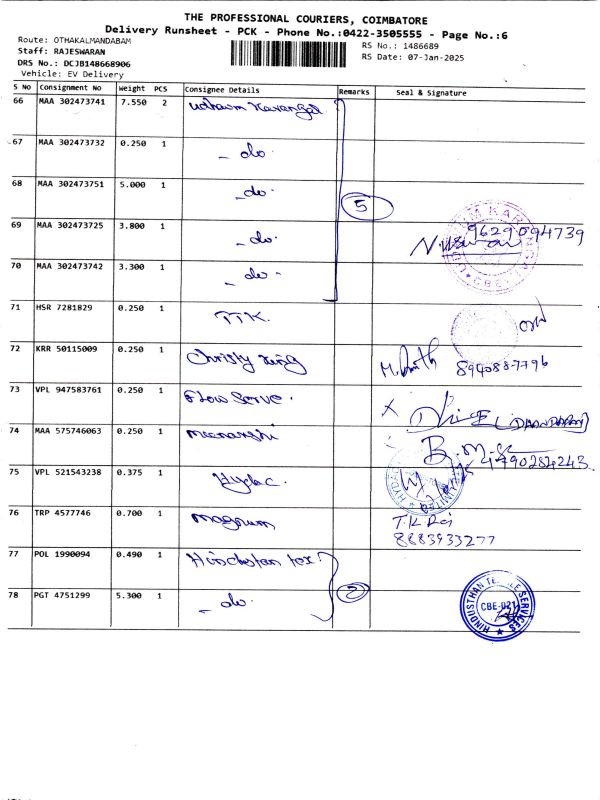 THE PROFESSIONAL COURIERS, COIMBATORE
Delivery Runsheet - PCK - Phone No.:0422-3505555 - Page No.:6
Route: OTHAKALMANDABAM
RS No.: 1486689
Staff: RAJESWARAN
RS Date: 07-Jan-2025
DRS No.: DCJB148668906
Vehicle: EV Delivery
S No Consignment No Weight PCS Consignee Details Remarks Seal & Signature
66 MAA 302473741 7.550 2
67 MAA 302473732 0.250 1 - do.
68 MAA 302473751 5.000 1 - do. 5
69 MAA 302473725 3.800 1 - do. 9629094739
70 MAA 302473742 3.300 1 - do -
71 HSR 7281829 0.250 1 TTK.
72 KRR 50115009 0.250 1 Christy King 8940887796
73 VPL 947583761 0.250 1 Flow Serve.
74 MAA 575746063 0.250 1 meenarshi
75 VPL 521543238 0.375 1 Hydac.
76 TRP 4577746 0.700 1 magnum T.K.Raj
8883933277
77 POL 1990094 0.490 1 Hindustan tex.
78 PGT 4751299 5.300 1 - do. 2
HINDUSTHAN TEXTILE SERVICES
CBE-021